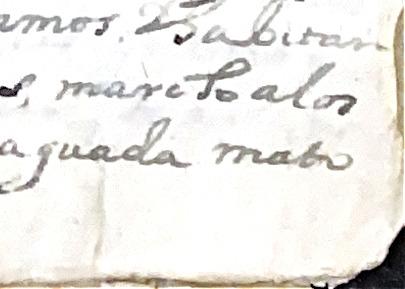 amos. Habitan
s, mari to a los
aguada mato